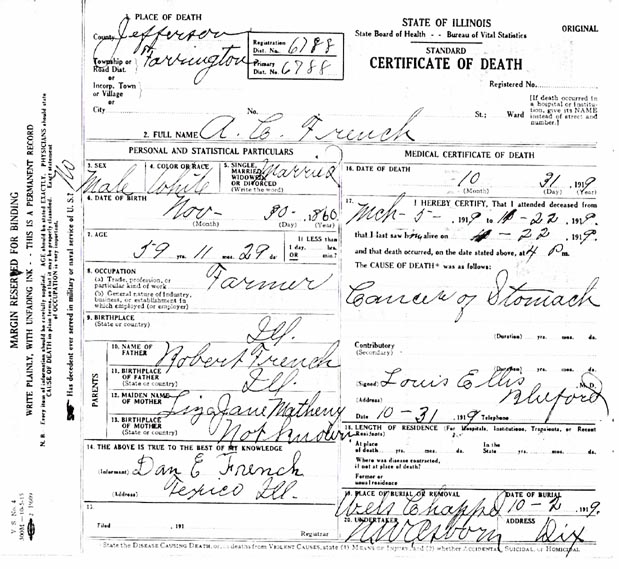 1. PLACE OF DEATH
County Jefferson
Township or Road Dist. Farrington
or
Incorp. Town
or Village
or
City
No.
St.; Ward
Registration Dist. No. 6788
Primary Dist. No. 6788
STATE OF ILLINOIS
State Board of Health -- Bureau of Vital Statistics
ORIGINAL
STANDARD
CERTIFICATE OF DEATH
Registered No.
[If death occurred in
a hospital or Institu-
tion, give its NAME
instead of street and
number.]
2. FULL NAME A. C. French
PERSONAL AND STATISTICAL PARTICULARS
3. SEX Male
4. COLOR OR RACE White
5. SINGLE, MARRIED, WIDOWED OR DIVORCED (Write the word) Married
6. DATE OF BIRTH Nov- 30- 1860
(Month) (Day) (Year)
7. AGE 59 yrs. 11 mos. 29 da.
If LESS than
1 day, hrs.
OR min.?
8. OCCUPATION Farmer
(a) Trade, profession, or
particular kind of work
(b) General nature of industry,
business, or establishment in
which employed (or employer)
9. BIRTHPLACE
(State or country) Ill.
PARENTS
10. NAME OF FATHER Robert French
11. BIRTHPLACE OF FATHER (State or country) Ill.
12. MAIDEN NAME OF MOTHER Liza Jane Matheny
13. BIRTHPLACE OF MOTHER (State or country) Not known
14. THE ABOVE IS TRUE TO THE BEST OF MY KNOWLEDGE
(Informant) Dan E French
(Address) Texico Ill.
15.
Filed , 191
Registrar
MEDICAL CERTIFICATE OF DEATH
16. DATE OF DEATH
10 31 1919
(Month) (Day) (Year)
17. I HEREBY CERTIFY, That I attended deceased from
Mch - 5 - 1919 to 22 1919.
that I last saw h alive on 22 1919.
and that death occurred, on the date stated above, at 4 P m.
The CAUSE OF DEATH* was as follows:
Cancer of Stomach
(Duration) yrs. mos. ds.
Contributory
(Secondary)
(Duration) yrs. mos. ds.
(Signed) Louis Ellis M. D.
(Address) Bluford
Date 10-31 1919 Telephone
18. LENGTH OF RESIDENCE (For Hospitals, Institutions, Transients, or Recent Residents)
At place of death yrs. mos. ds.
In the State yrs. mos. ds.
Where was disease contracted,
if not at place of death?
Former or
usual residence
19. PLACE OF BURIAL OR REMOVAL
Wells Chappel
DATE OF BURIAL
10-2 1919.
20. UNDERTAKER
ADDRESS
Dix
*State the DISEASE CAUSING DEATH, or, in deaths from VIOLENT CAUSES, state (1) MEANS OF INJURY, and (2) whether ACCIDENTAL, SUICIDAL, or HOMICIDAL
MARGIN RESERVED FOR BINDING
WRITE PLAINLY, WITH UNFADING INK -- THIS IS A PERMANENT RECORD
Has decedent ever served in military or naval service of U. S.? No
V. S. No. 4